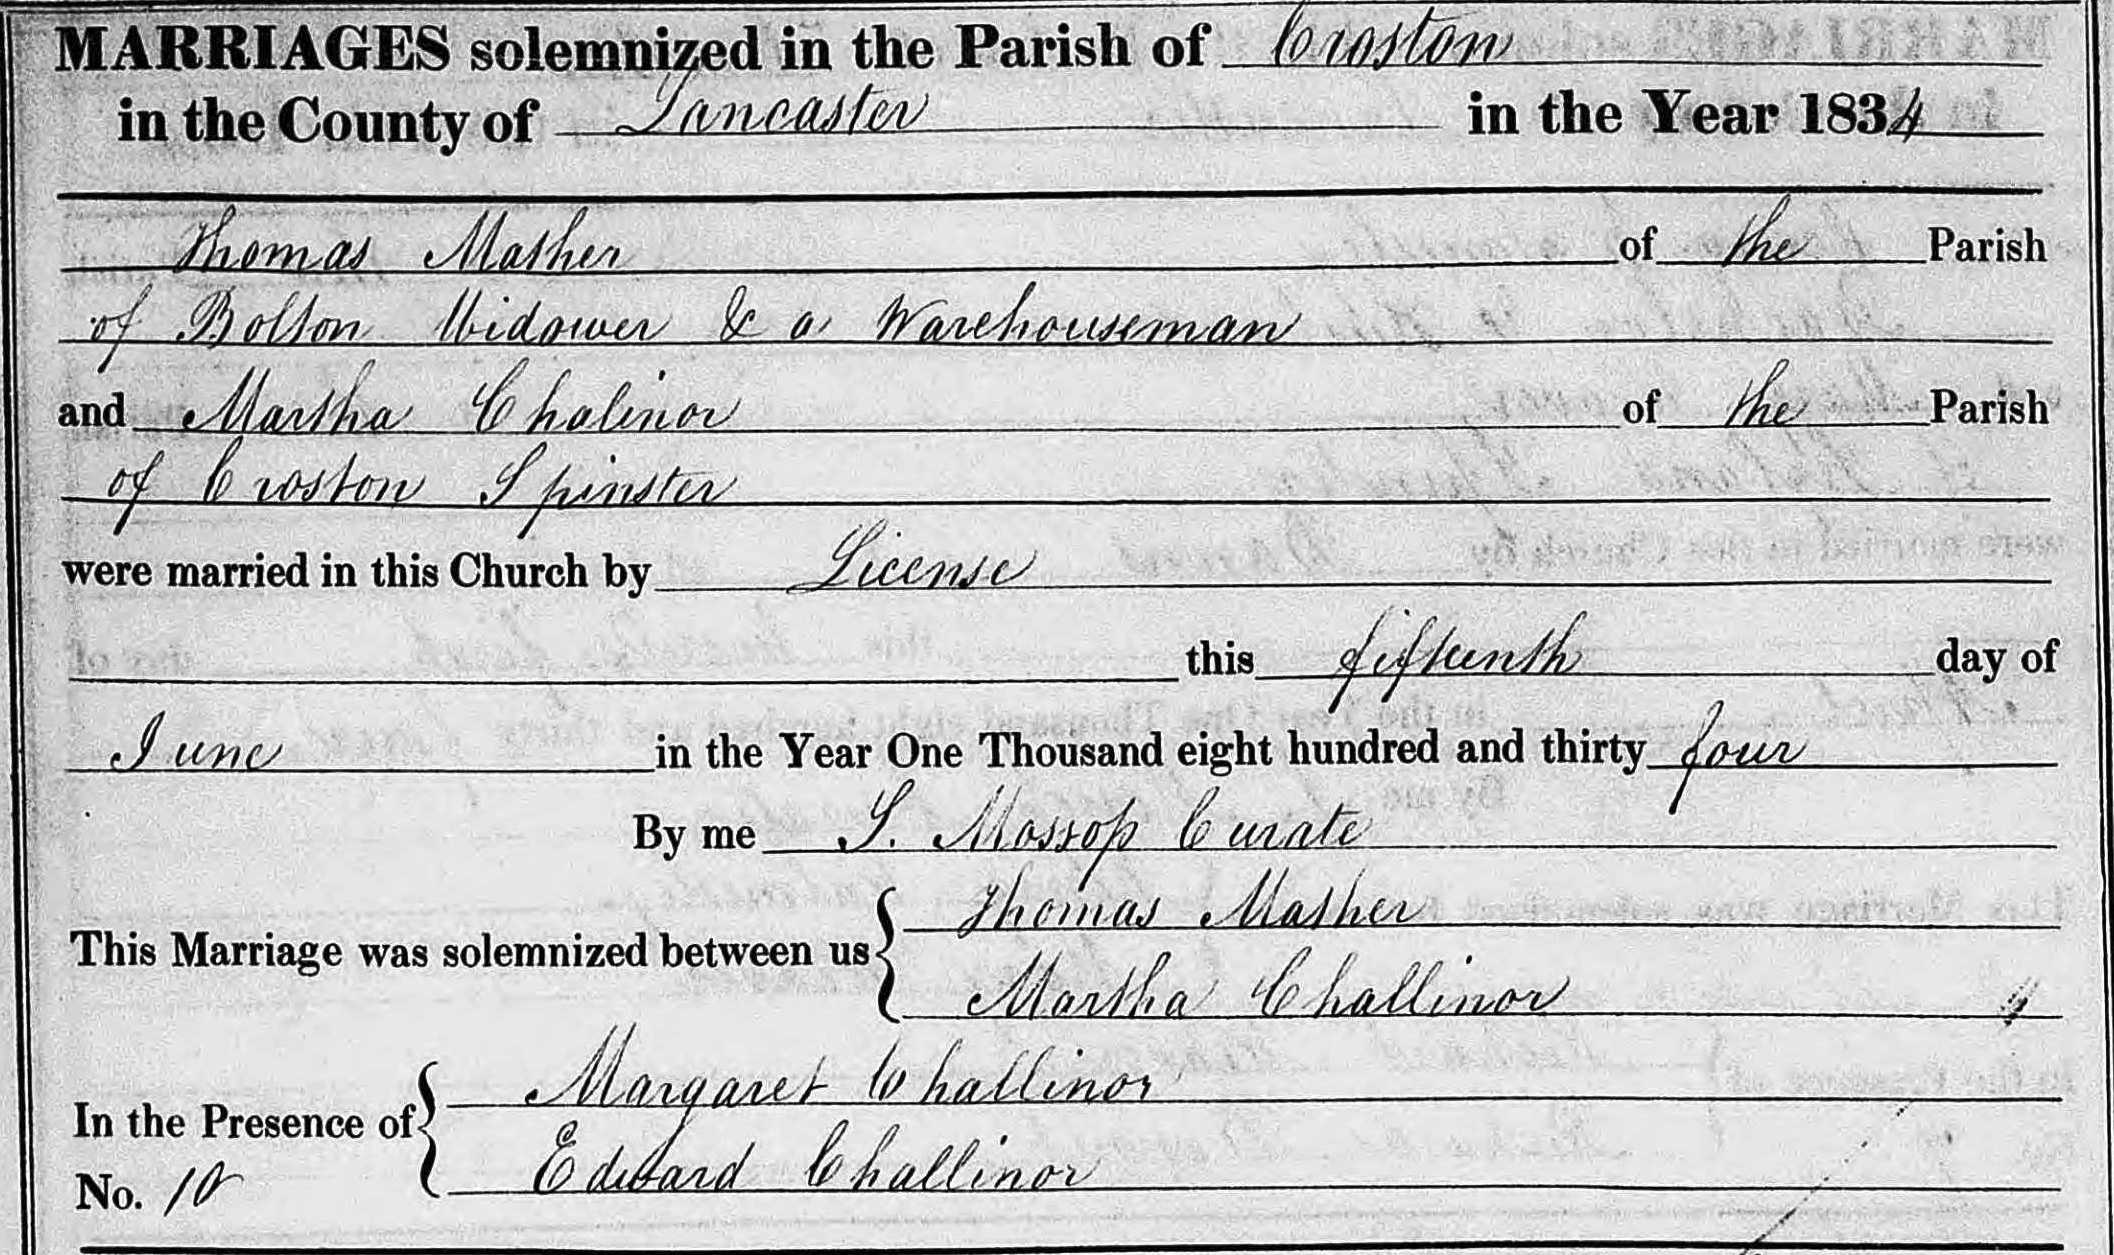 MARRIAGES solemnized in the Parish of Croston
in the County of Lancaster in the Year 1834
Thomas Mather of the Parish
of Bolton Widower & a Warehouseman
and Martha Chalinor of the Parish
of Croston Spinster
were married in this Church by License
this fifteenth day of
June in the Year One Thousand eight hundred and thirty four
By me S. Mossop Curate
This Marriage was solemnized between us { Thomas Mather
Martha Challinor
In the Presence of { Margaret Challinor
Edward Challinor
No. 10